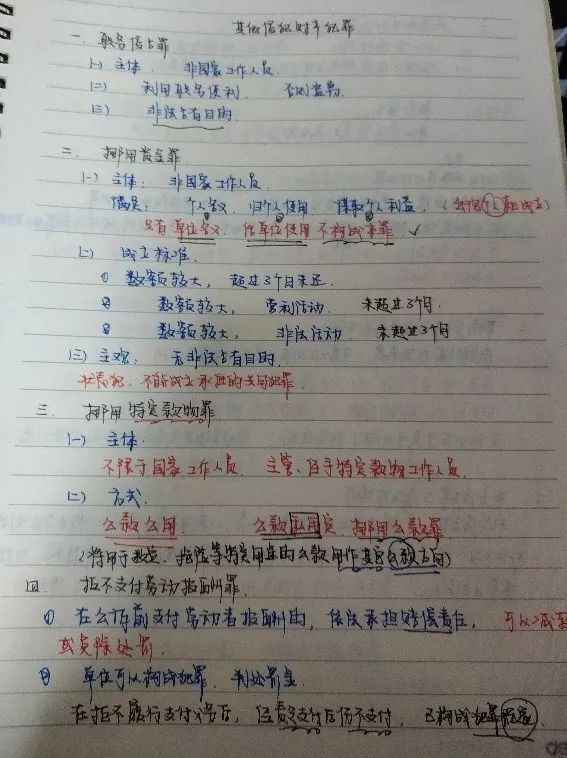 其他侵犯财产犯罪
一、职务侵占罪
(一) 主体 非国家工作人员.
(二) 利用职务便利. 否则盗窃.
(三) 非法占有目的
二、挪用资金罪
(一) 主体: 非国家工作人员.
满足: 个人名义. 归个人使用 谋取个人利益.
只有单位名义. 给单位使用 不构成本罪 ✓
(二) 成立标准.
① 数额较大, 超过3个月未还.
② 数额较大, 营利活动. 未超过3个月.
③ 数额较大, 非法活动. 未超过3个月
(三) 主观. 无非法占有目的.
状态犯, 不能成立承继的共同犯罪.
三. 挪用特定款物罪
(一) 主体.
不限于国家工作人员. 主管、经手特定款物工作人员.
(二) 方式.
公款公用. 公款私用定. 挪用公款罪
(将用于救灾. 抢险等特定用途的公款用作其它公款方向)
四. 拒不支付劳动报酬罪.
① 在公诉前支付劳动者报酬的, 依法承担赔偿责任, 可以减轻
或免除处罚.
② 单位可以构成犯罪. 判处罚金
在拒不履行支付义务后, 经责令支付后仍不支付, 已构成犯罪